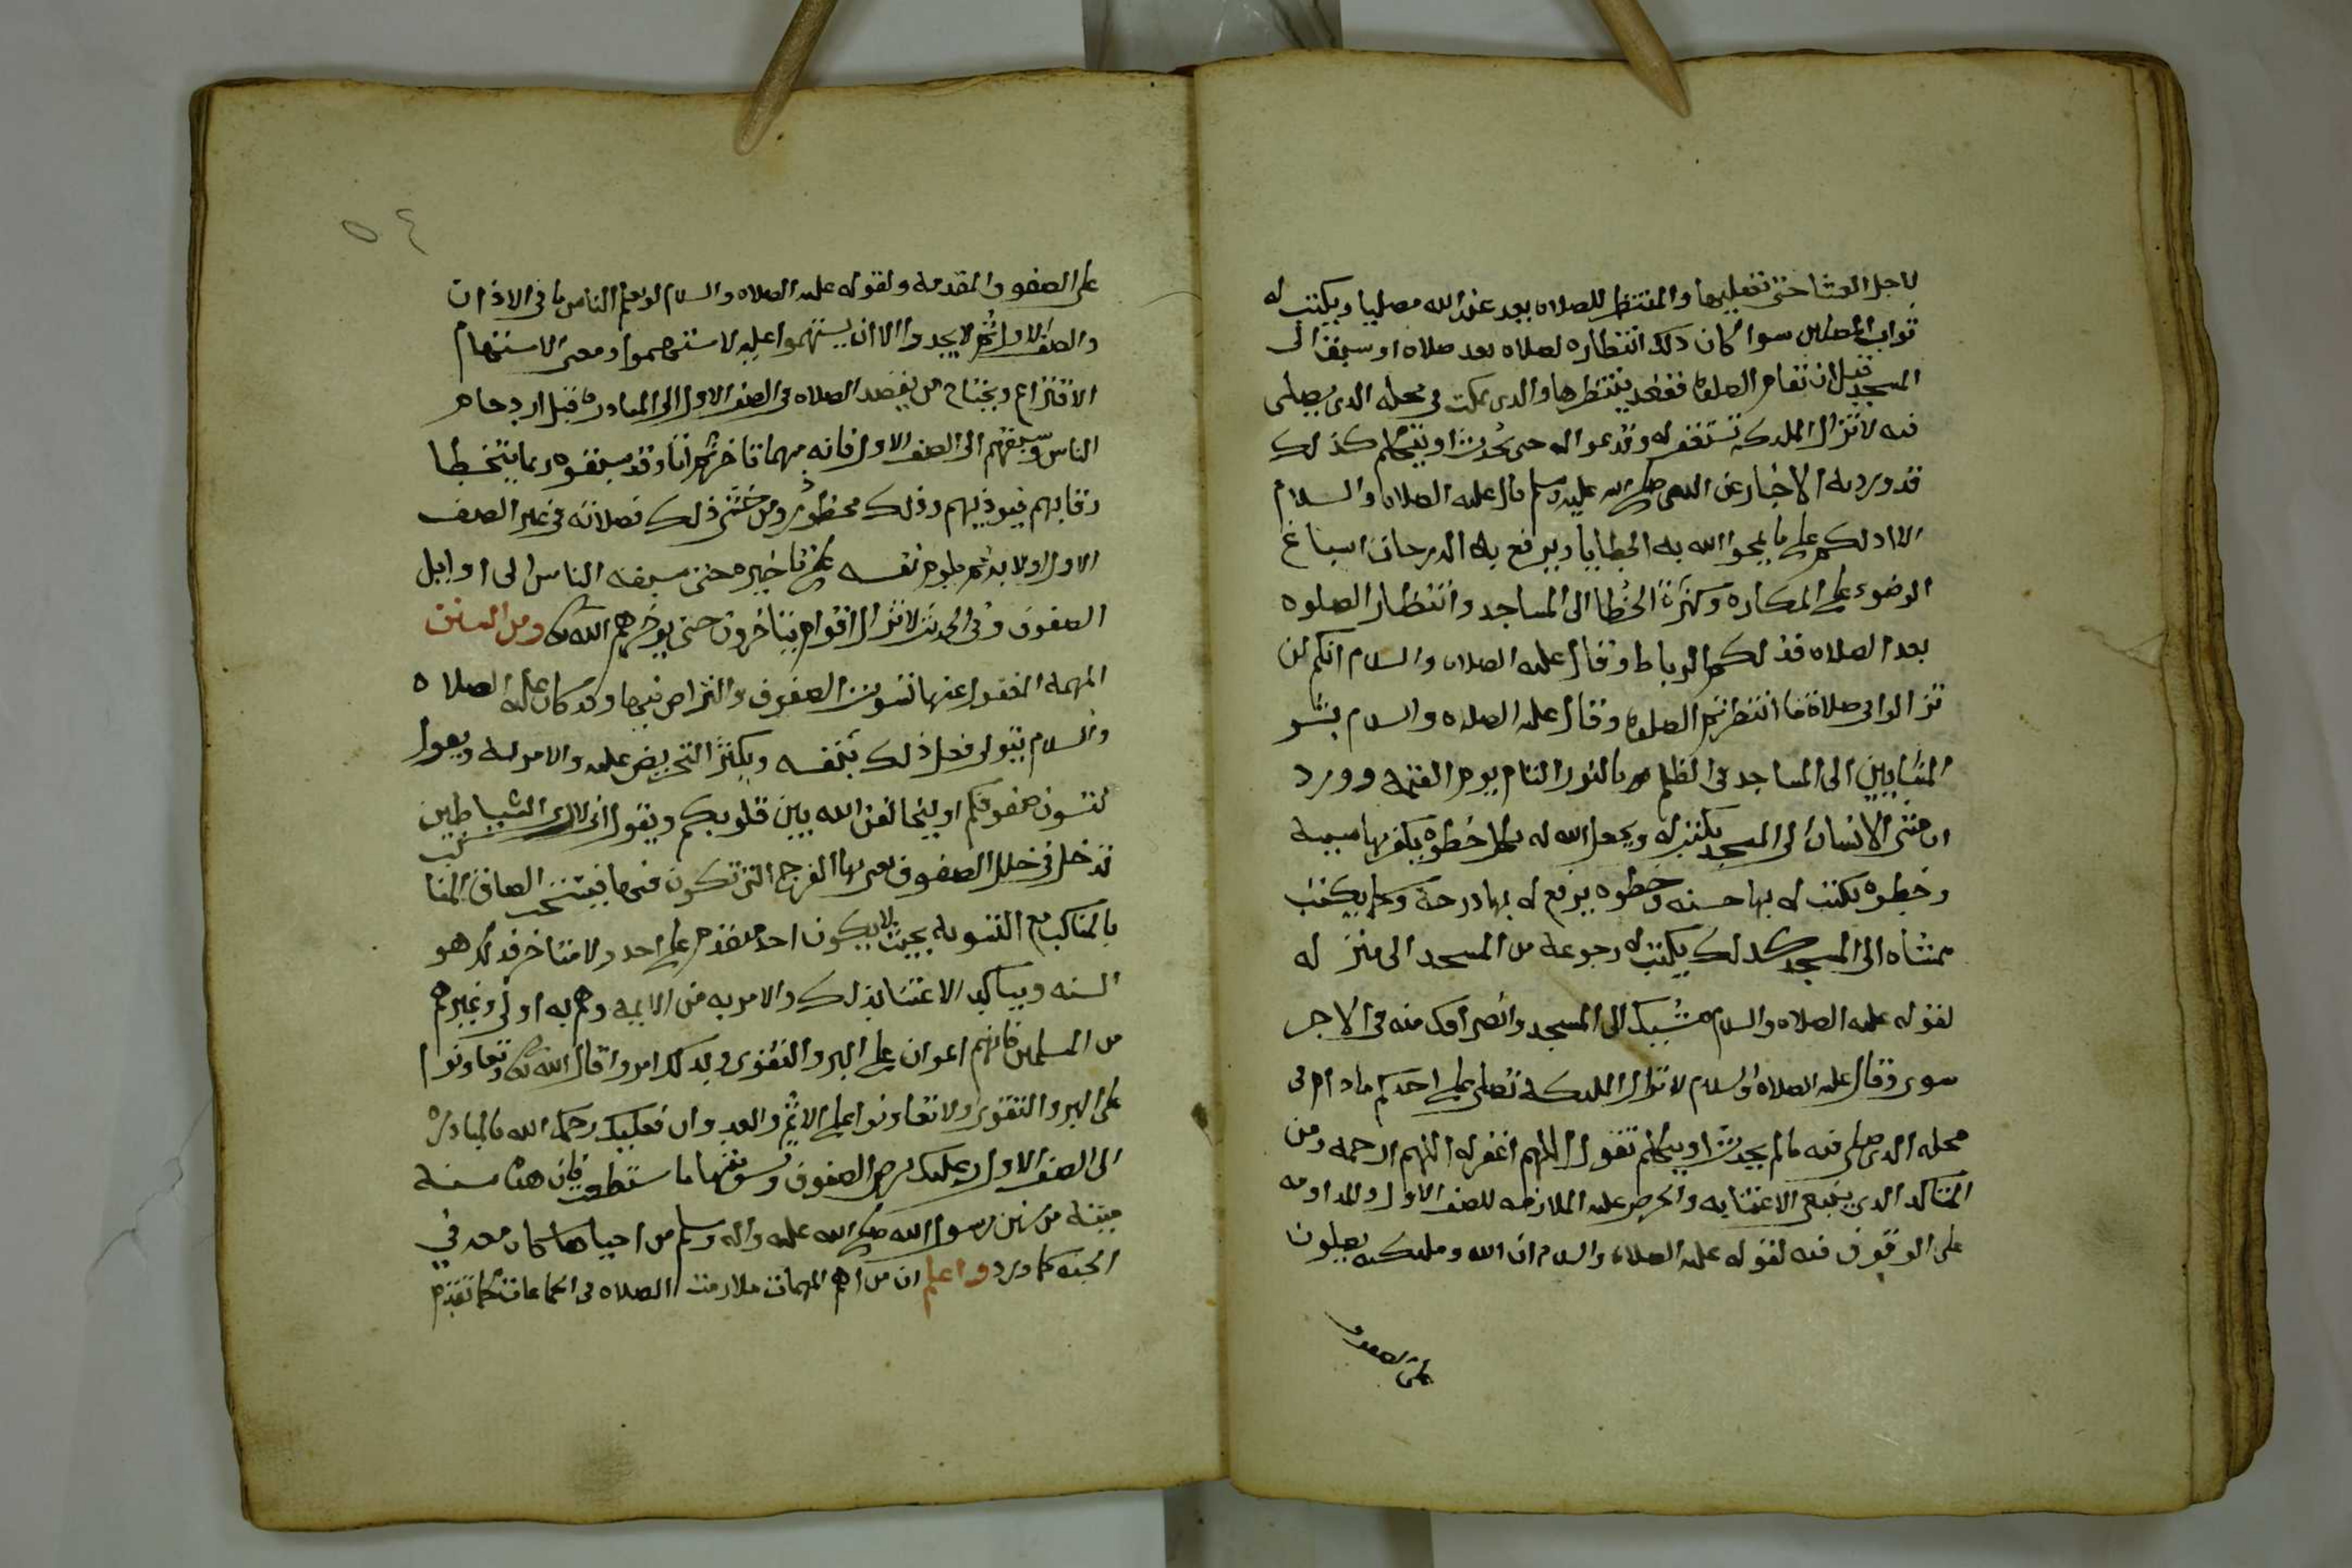 لاجل العشا حتى تصليها والمنتظر للصلاه يعد عند الله مصليا ويكتب له
ثواب المصلين سوا كان ذلك انتظاره لصلاه بعد صلاه او سبق الى
المسجد قبل ان تقام الصلوه فقعد ينتظرها والذى يمكث في محله الذي يصلى
فيه لا تزال الملئكه تستغفر له وتدعو اله حتى يحدث او يتكلم كذلك
قد ورد به الاخبار عن النبي صلى الله عليه وسلم قال عليه الصلاه والسلام
الا ادلكم على ما يمحوا الله به الخطايا ويرفع به الدرجات اسباغ
الوضوء على المكاره وكثرة الخطا الى المساجد وانتظار الصلوه
بعد الصلاه فذلكم الرباط وقال عليه الصلاه والسلام انكم لن
تزالوا في صلاة ما انتظرتم الصلوه وقال عليه الصلاه والسلام بشر
المشايين الى المساجد في الظلم بالنور التام يوم القيمه وورد
ان مشى الانسان الى المسجد يكتب له ويجعل الله له بكل خطوه يكفر بها سيية
وخطوه يكتب له بها حسنه وخطوه يرفع له بها درجة وكما يكتب
ممشاه الى المسجد كذلك يكتب له رجوعه من المسجد الى منزله
لقوله عليه الصلاه والسلام مشيك الى المسجد وانصرافك منه في الاجر
سوى وقال عليه الصلاه والسلام لا تزال الملئكه تصلى على احدكم ما دام في
محله الذي صلى فيه ما لم يحدث او يتكلم تقول اللهم اغفر له اللهم ارحمه ومن
المتاكد الذي ينبغي الاعتنا به والحرص عليه الملازمه للصف الاول والمداومه
على الوقوف فيه لقوله عليه الصلاه والسلام ان الله وملئكته يصلون
على الصفوف
٥٤
على الصفوف المقدمه ولقوله عليه الصلاه والسلام لو يعلم الناس ما في الاذان
والصف الاول ثم لا يجدوا الا ان يستهموا عليه لاستهموا ومعنى الاستهام
الاقتراع ويحتاج من يقصد الصلاه في الصف الاول الى المبادره قبل ازدحام
الناس وسبقهم الى الصف الاول فانه مهما تاخر ثم اتا وقد سبقوه ربما يتخطا
رقابهم فيوذيهم وذلك محظور ومن خشى ذلك فصلاته في غير الصف
الاول اولا به ثم يلوم نفسه على تاخيره حتى سبقه الناس الى اوايل
الصفوف وفي الحديث لا تزال اقوام يتاخرون حتى يوخرهم الله تعالى ومن السنن
المهمه المغفول عنها تسويت الصفوف والتراص فيها وقد كان عليه الصلاه
والسلام يتولى فعل ذلك بنفسه ويكثر التحريض عليه والامر به ويقول
لتسون صفوفكم او ليخالفن الله بين قلوبكم ويقول انى لارى الشياطين
تدخل في خلل الصفوف يعني بها الفرج التي تكون فيها فيستحب الصاق المناكب
بالمناكب مع التسويه بحيث لا يكون احد متقدم على احد ولا متاخر فذلك هو
السنه ويتاكد الاعتنا بذلك والامر به من الايمه وهم به اولى وغيرهم
من المسلمين فانهم اعوان على البر والتقوى وبذلك امروا قال الله تعالى وتعاونوا
على البر والتقوى ولا تعاونوا على الاثم والعدوان فعليك رحمك الله بالمبادره
الى الصف الاول وعليك برص الصفوف وتسويتها ما استطعت فان هذه سنة
ميته من سنن رسول الله صلى الله عليه واله وسلم من احياها كان معه في
الجنه كما ورد واعلم ان من اهم المهمات ملازمت الصلاه في الجماعات كما تقدم